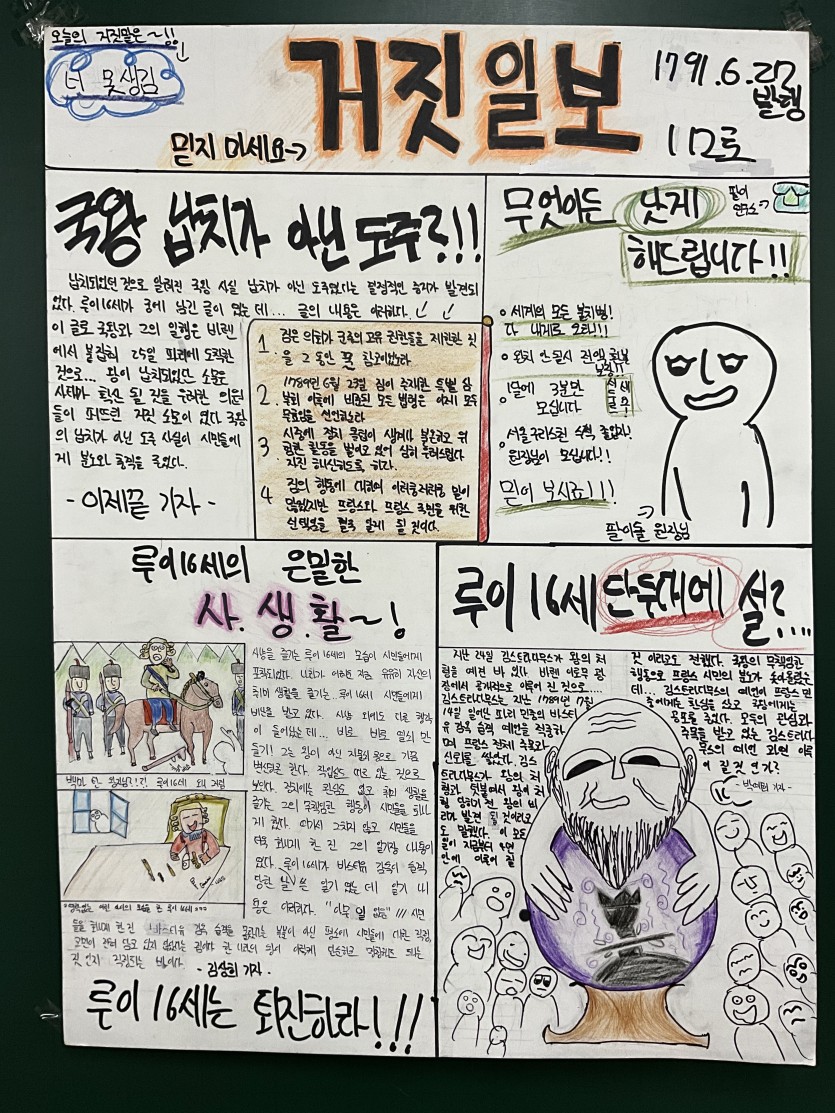 오늘의 거짓말은~!!
너 못생김
믿지 마세요→
거짓일보
1791.6.27
발행
112호
국왕 납치가 아닌 도주?!!
납치되었던 것으로 알려진 국왕 사실 납치가 아닌 도주였다는 결정적인 증거가 발견되
었다. 루이16세가 궁에 남긴 글이 있는데... 글의 내용은 이러하다.↓↓
이 글로 국왕와 그의 일행은 비렌
에서 붙잡혀 25일 파리에 도착한
것으로... 왕이 납치되었단 소문은
사태가 확산 될 것을 우려한 의원
들이 퍼뜨린 거짓 소문이 였다. 국왕
의 납치가 아닌 도주 사실이 시민들에
게 분노와 충격을 주었다.
- 이제끝 기자 -
1 짐은 의회가 군주의 고유 권한들을 제한한 것
을 그 동안 꾹 참고있었다
2 1789년 6월 23일 짐이 주재한 특별 삼
부회 이후에 비준된 모든 법령은 이제 모두
무효임을 선언하노라
3 시중에 정치 클럽이 생겨나 불손하고 위
험한 활동을 벌이고 있어 심히 우려스럽다
자진 해산하도록 하라.
4 짐의 행동에 대하여 이러쿵저러쿵 말이
많겠지만 프랑스와 프랑스 국민을 위한
선택임을 결국 알게 될 것이다.
무엇이든 낫게
해드립니다!!
팔이
연구소→
세계의 모든 불치병!
다 내게로 오라!!!
완치 안될시 전액 환불
보장!!
1달에 3분만 선착순
모십니다
서울구리스천 수석 졸업자!
원장님이 모십니다!!
믿어 보시죠!!!
팔이술 원장님
루이16세의 은밀한
사.생.활~!
사냥을 즐기는 루이16세의 모습이 시민들에게
포착되었다. 나라가 어려운 지금 유유히 자신의
취미 생활을 즐기는 루이 16세 시민들에게
비난을 받고 있다. 사냥 외에도 다른 행적
이 들어왔는데... 바로 바로 열쇠 만
들기! 그는 왕이 아닌 자물쇠공으로 가끔
변신하곤 한다. 작업실도 따로 있는 것으로
보인다. 정치에는 관심도 없고 취미 생활을
즐기는 그의 무책임한 행동이 시민들을 화나
게 했다. 여기서 그치지 않고 시민들을
더욱 화나게 한 건 그의 일기장 내용이
었다. 루이16세가 바스티유 감옥이 습격
당한 날 쓴 일기 있는데 일기 내
용은 이러하다. "아무 일 없음" /// 시민
들을 화나게 한 건 바스티유 감옥 습격을
- 김성희 기자 -
루이 16세는 퇴진하라!!!
루이 16세 단두대에 설?...
지난 24일 김스트라다무스가 왕의 처
형을 예언 한 바 있다.
김스트라다무스는 지난 1789년 7월
14일 일어난 파리 민중의 바스티
유 감옥 습격 예언을 적중하
며 프랑스 전체 주목과
신뢰를 쌓았다. 김스
트라다무스가 왕의 처
형과 덧붙여서 왕이 처
형 당하기 전 왕의 비
리가 발견 될 것이라고
도 말했다. 이 모든
일이 지금부터 2년
안에 이루어 질
것 이라고도 전했다. 국왕의 무책임한
행동으로 프랑스 시민의 분노가 솟아올랐는
데... 김스트라다무스의 예언이 프랑스 민
중에게는 환심을 샀고 국왕에게는
공포를 주었다. 모두의 관심과
주목을 받고 있는 김스트라다
무스의 예언 과연 이루
어 질것 인가?